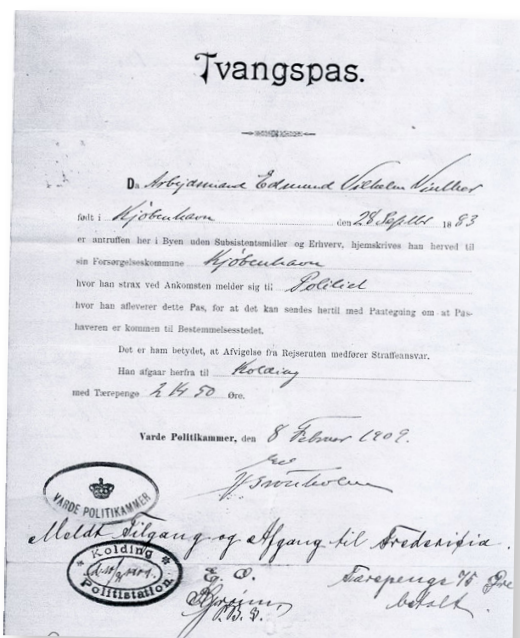 Tvangspas.
Da Arbejdsmand Edmund Vilhelm Winther
født i Kjøbenhavn den 28 Septbr 1883
er antruffen her i Byen uden Subsistentsmidler og Erhverv, hjemskrives han herved til
sin Forsørgelseskommune Kjøbenhavn
hvor han strax ved Ankomsten melder sig til Politiet
hvor han afleverer dette Pas, for at det kan sendes hertil med Paategning om at Pas-
haveren er kommen til Bestemmelsesstedet.
Det er ham betydet, at Afvigelse fra Rejseruten medfører Straffeansvar.
Han afgaar herfra til Kolding
med Tærepenge 2 Kr 50 Øre.
Varde Politikammer, den 8 Februar 1909.
VARDE POLITIKAMMER
Meldt Tilgang og Afgang til Fredericia.
Kolding
Politistation.
E. O.
Tærepenge 75 Øre
betalt.